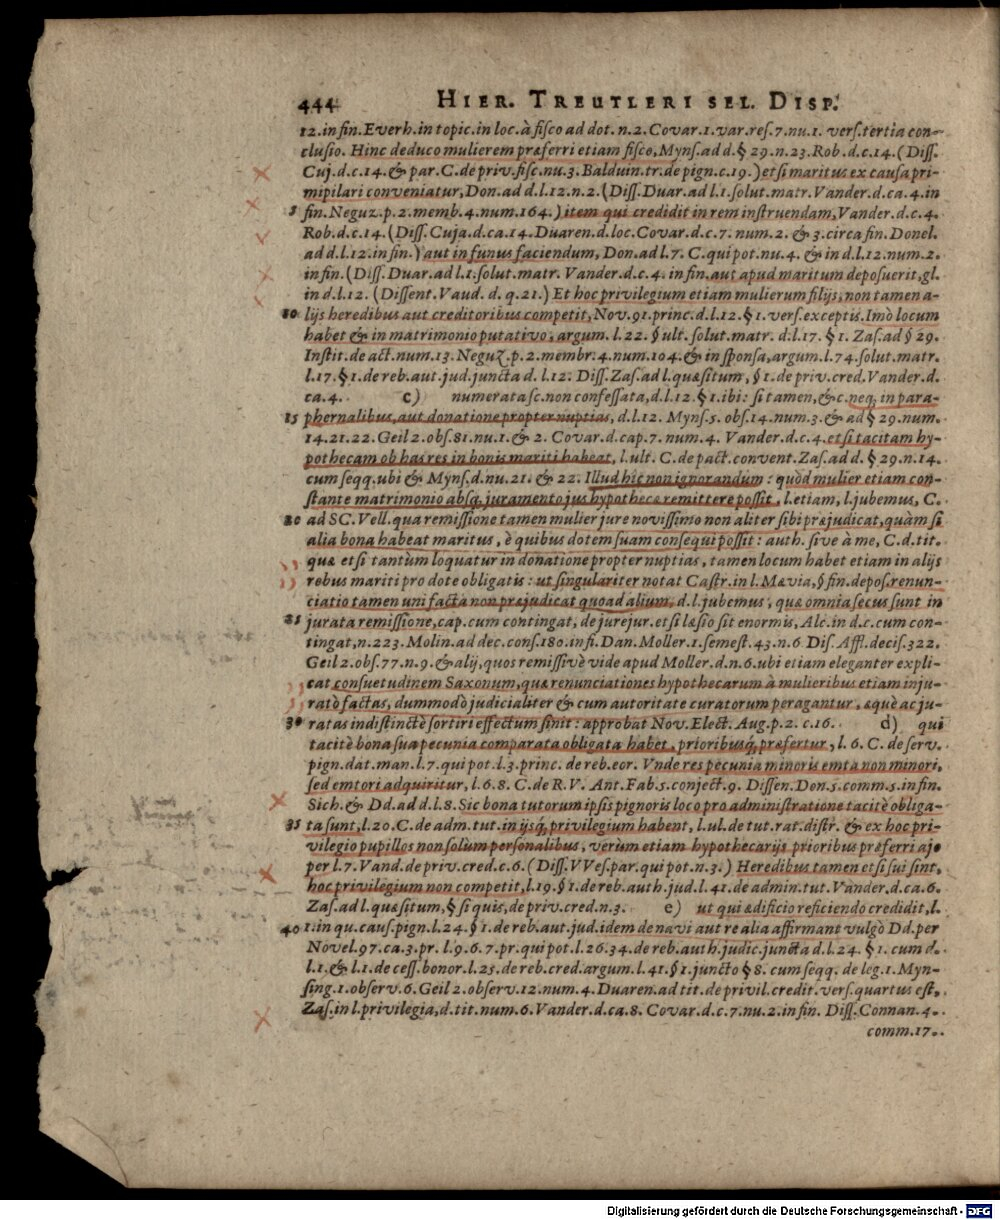 444 HIER. TREUTLERI SEL. DISP.
12. in fin. Everh. in topic. in loc. à fisco ad dot. n. 2. Covar. 1. var. res. 7. nu. 1. vers. tertia con-
clusio. Hinc deduco mulierem præferri etiam fisco, Myns. ad d. § 29. n. 23. Rob. d. c. 14. (Diss.
Cuj. d. c. 14. & par. C. de priv. fisc. nu. 3. Balduin. tr. de pign. c. 19.) etsi maritus ex causa pri-
mipilari conveniatur, Don. ad d. l. 12. n. 2. (Diss. Duar. ad l. 1. solut. matr. Vander. d. ca. 4. in
5 fin. Neguz. p. 2. memb. 4. num. 164.) item qui credidit in rem instruendam, Vander. d. c. 4.
Rob. d. c. 14. (Diss. Cuja. d. ca. 14. Duaren. d. loc. Covar. d. c. 7. num. 2. & 3. circa fin. Donel.
ad d. l. 12. in fin.) aut in funus faciendum, Don. ad l. 7. C. qui pot. nu. 4. & in d. l. 12. num. 2.
in fin. (Diss. Duar. ad l. 1. solut. matr. Vander. d. c. 4. in fin. aut apud maritum deposuerit, gl.
in d. l. 12. (Dissent. Vaud. d. q. 21.) Et hoc privilegium etiam mulierum filijs, non tamen a-
10 lijs heredibus aut creditoribus competit, Nov. 91. princ. d. l. 12. § 1. vers. exceptis. Imò locum
habet & in matrimonio putativo, argum. l. 22. § ult. solut. matr. d. l. 17. § 1. Zas. ad § 29.
Instit. de act. num. 13. Neguz. p. 2. membr. 4. num. 104. & in sponsa, argum. l. 74. solut. matr.
l. 17. § 1. de reb. aut. jud. juncta d. l. 12. Diss. Zas. ad l. quæsitum, § 1. de priv. cred. Vander. d.
ca. 4. c) numerata sc. non confessata, d. l. 12. § 1. ibi: si tamen, &c. neq; in para-
15 phernalibus, aut donatione propter nuptias, d. l. 12. Myns. 5. obs. 14. num. 3. & ad § 29. num.
14. 21. 22. Geil 2. obs. 81. nu. 1. & 2. Covar. d. cap. 7. num. 4. Vander. d. c. 4. etsi tacitam hy-
pothecam ob has res in bonis mariti habeat, l. ult. C. de pact. convent. Zas. ad d. § 29. n. 14.
cum seqq. ubi & Myns. d. nu. 21. & 22. Illud hîc non ignorandum: quòd mulier etiam con-
stante matrimonio absq; juramento jus hypothecæ remittere possit, l. etiam, l. jubemus, C.
20 ad SC. Vell. qua remissione tamen mulier jure novissimo non aliter sibi præjudicat, quàm si
alia bona habeat maritus, è quibus dotem suam consequi possit: auth. sive à me, C. d. tit.
quæ etsi tantùm loquatur in donatione propter nuptias, tamen locum habet etiam in alijs
rebus mariti pro dote obligatis: ut singulariter notat Castr. in l. Mævia, § fin. depos. renun-
ciatio tamen uni facta non præjudicat quoad alium, d. l. jubemus, quæ omnia secus sunt in
25 jurata remissione, cap. cum contingat, de jurejur. etsi læsio sit enormis, Alc. in d. c. cum con-
tingat, n. 223. Molin. ad dec. cons. 180. infi. Dan. Moller. 1. semest. 43. n. 6. Dis. Affl. decis. 322.
Geil 2. obs. 77. n. 9. & alij, quos remissivè vide apud Moller. d. n. 6. ubi etiam eleganter expli-
cat consuetudinem Saxonum, quæ renunciationes hypothecarum à mulieribus etiam inju-
ratò factas, dummodò judicialiter & cum autoritate curatorum peragantur, æquè ac ju-
30 ratas indistinctè sortiri effectum sinit: approbat Nov. Elect. Aug. p. 2. c. 16. d) qui
tacitè bona sua pecunia comparata obligata habet, prioribusq; præfertur, l. 6. C. de serv.
pign. dat. man. l. 7. qui pot. l. 3. princ. de reb. eor. Unde res pecunia minoris emta non minori,
sed emtori adquiritur, l. 6. 8. C. de R. V. Ant. Fab. 5. conject. 9. Dissen. Don. 5. comm. 5. in fin.
Sich. & Dd. ad d. l. 8. Sic bona tutorum ipsis pignoris loco pro administratione tacitè obliga-
35 ta sunt, l. 20. C. de adm. tut. in ijsq; privilegium habent, l. ul. de tut. rat. distr. & ex hoc pri-
vilegio pupillos non solùm personalibus, verùm etiam hypothecarijs prioribus præferri ajo
per l. 7. Vand. de priv. cred. c. 6. (Diss. VVes. par. qui pot. n. 3.) Heredibus tamen etsi sui sint,
hoc privilegium non competit, l. 19. § 1. de reb. auth. jud. l. 41. de admin. tut. Vander. d. ca. 6.
Zas. ad l. quæsitum, § si quis, de priv. cred. n. 3. e) ut qui ædificio reficiendo credidit, l.
40 1. in qu. caus. pign. l. 24. § 1. de reb. aut. jud. idem de navi aut re alia affirmant vulgò Dd. per
Novel. 97. ca. 3. pr. l. 9. 6. 7. pr. qui pot. l. 26. 34. de reb. auth. judic. juncta d. l. 24. § 1. cum d.
l. 1. & l. 1. de cess. bonor. l. 25. de reb. cred. argum. l. 41. § 1. juncto § 8. cum seqq. de leg. 1. Myn-
sing. 1. observ. 6. Geil 2. observ. 12. num. 4. Duaren. ad tit. de privil. credit. vers. quartus est,
Zas. in l. privilegia, d. tit. num. 6. Vander. d. ca. 8. Covar. d. c. 7. nu. 2. in fin. Diss. Connan. 4.
comm. 17.
Digitalisierung gefördert durch die Deutsche Forschungsgemeinschaft - DFG